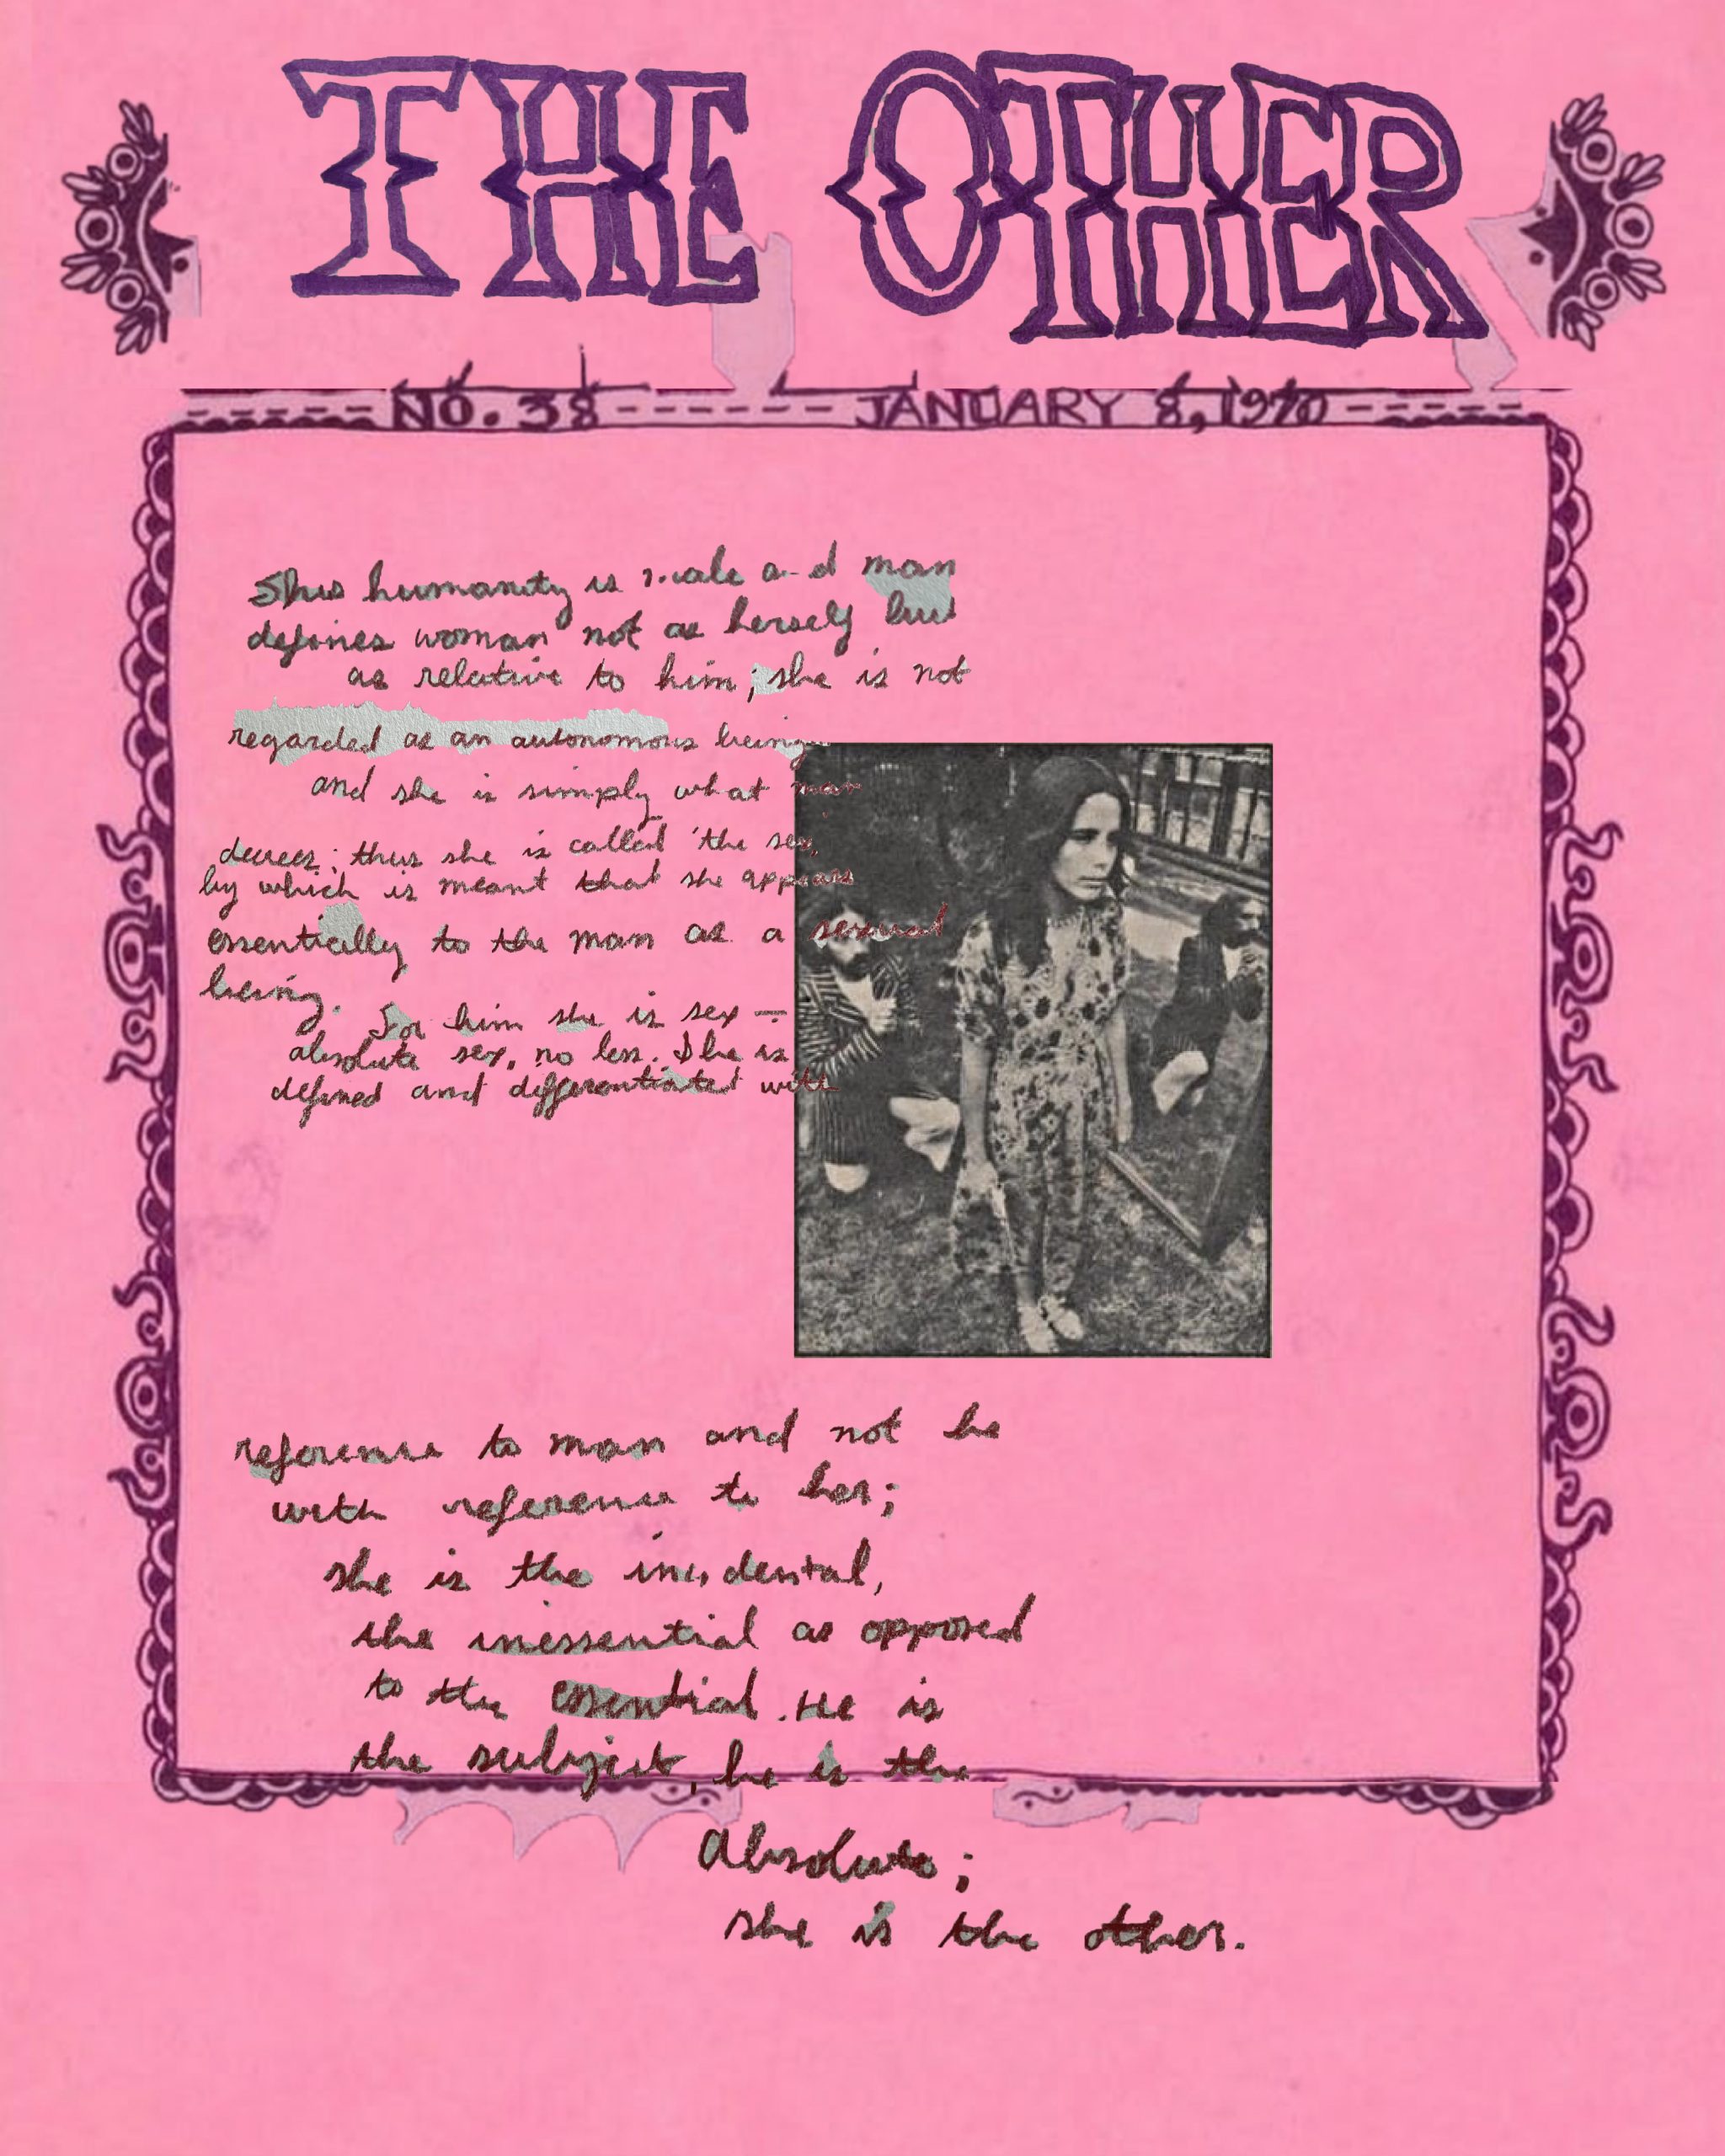 THE OTHER
NO. 38 JANUARY 8, 1970
Thus humanity is male and man
defines woman not as herself but
as relative to him; she is not
regarded as an autonomous being
and she is simply what man
decrees; thus she is called 'the sex,'
by which is meant that she appears
essentially to the man as a sexual
being.
For him she is sex –
absolute sex, no less. She is
defined and differentiated with
reference to man and not he
with reference to her;
she is the incidental,
the inessential as opposed
to the essential. He is
the subject, he is the
Absolute;
she is the other.